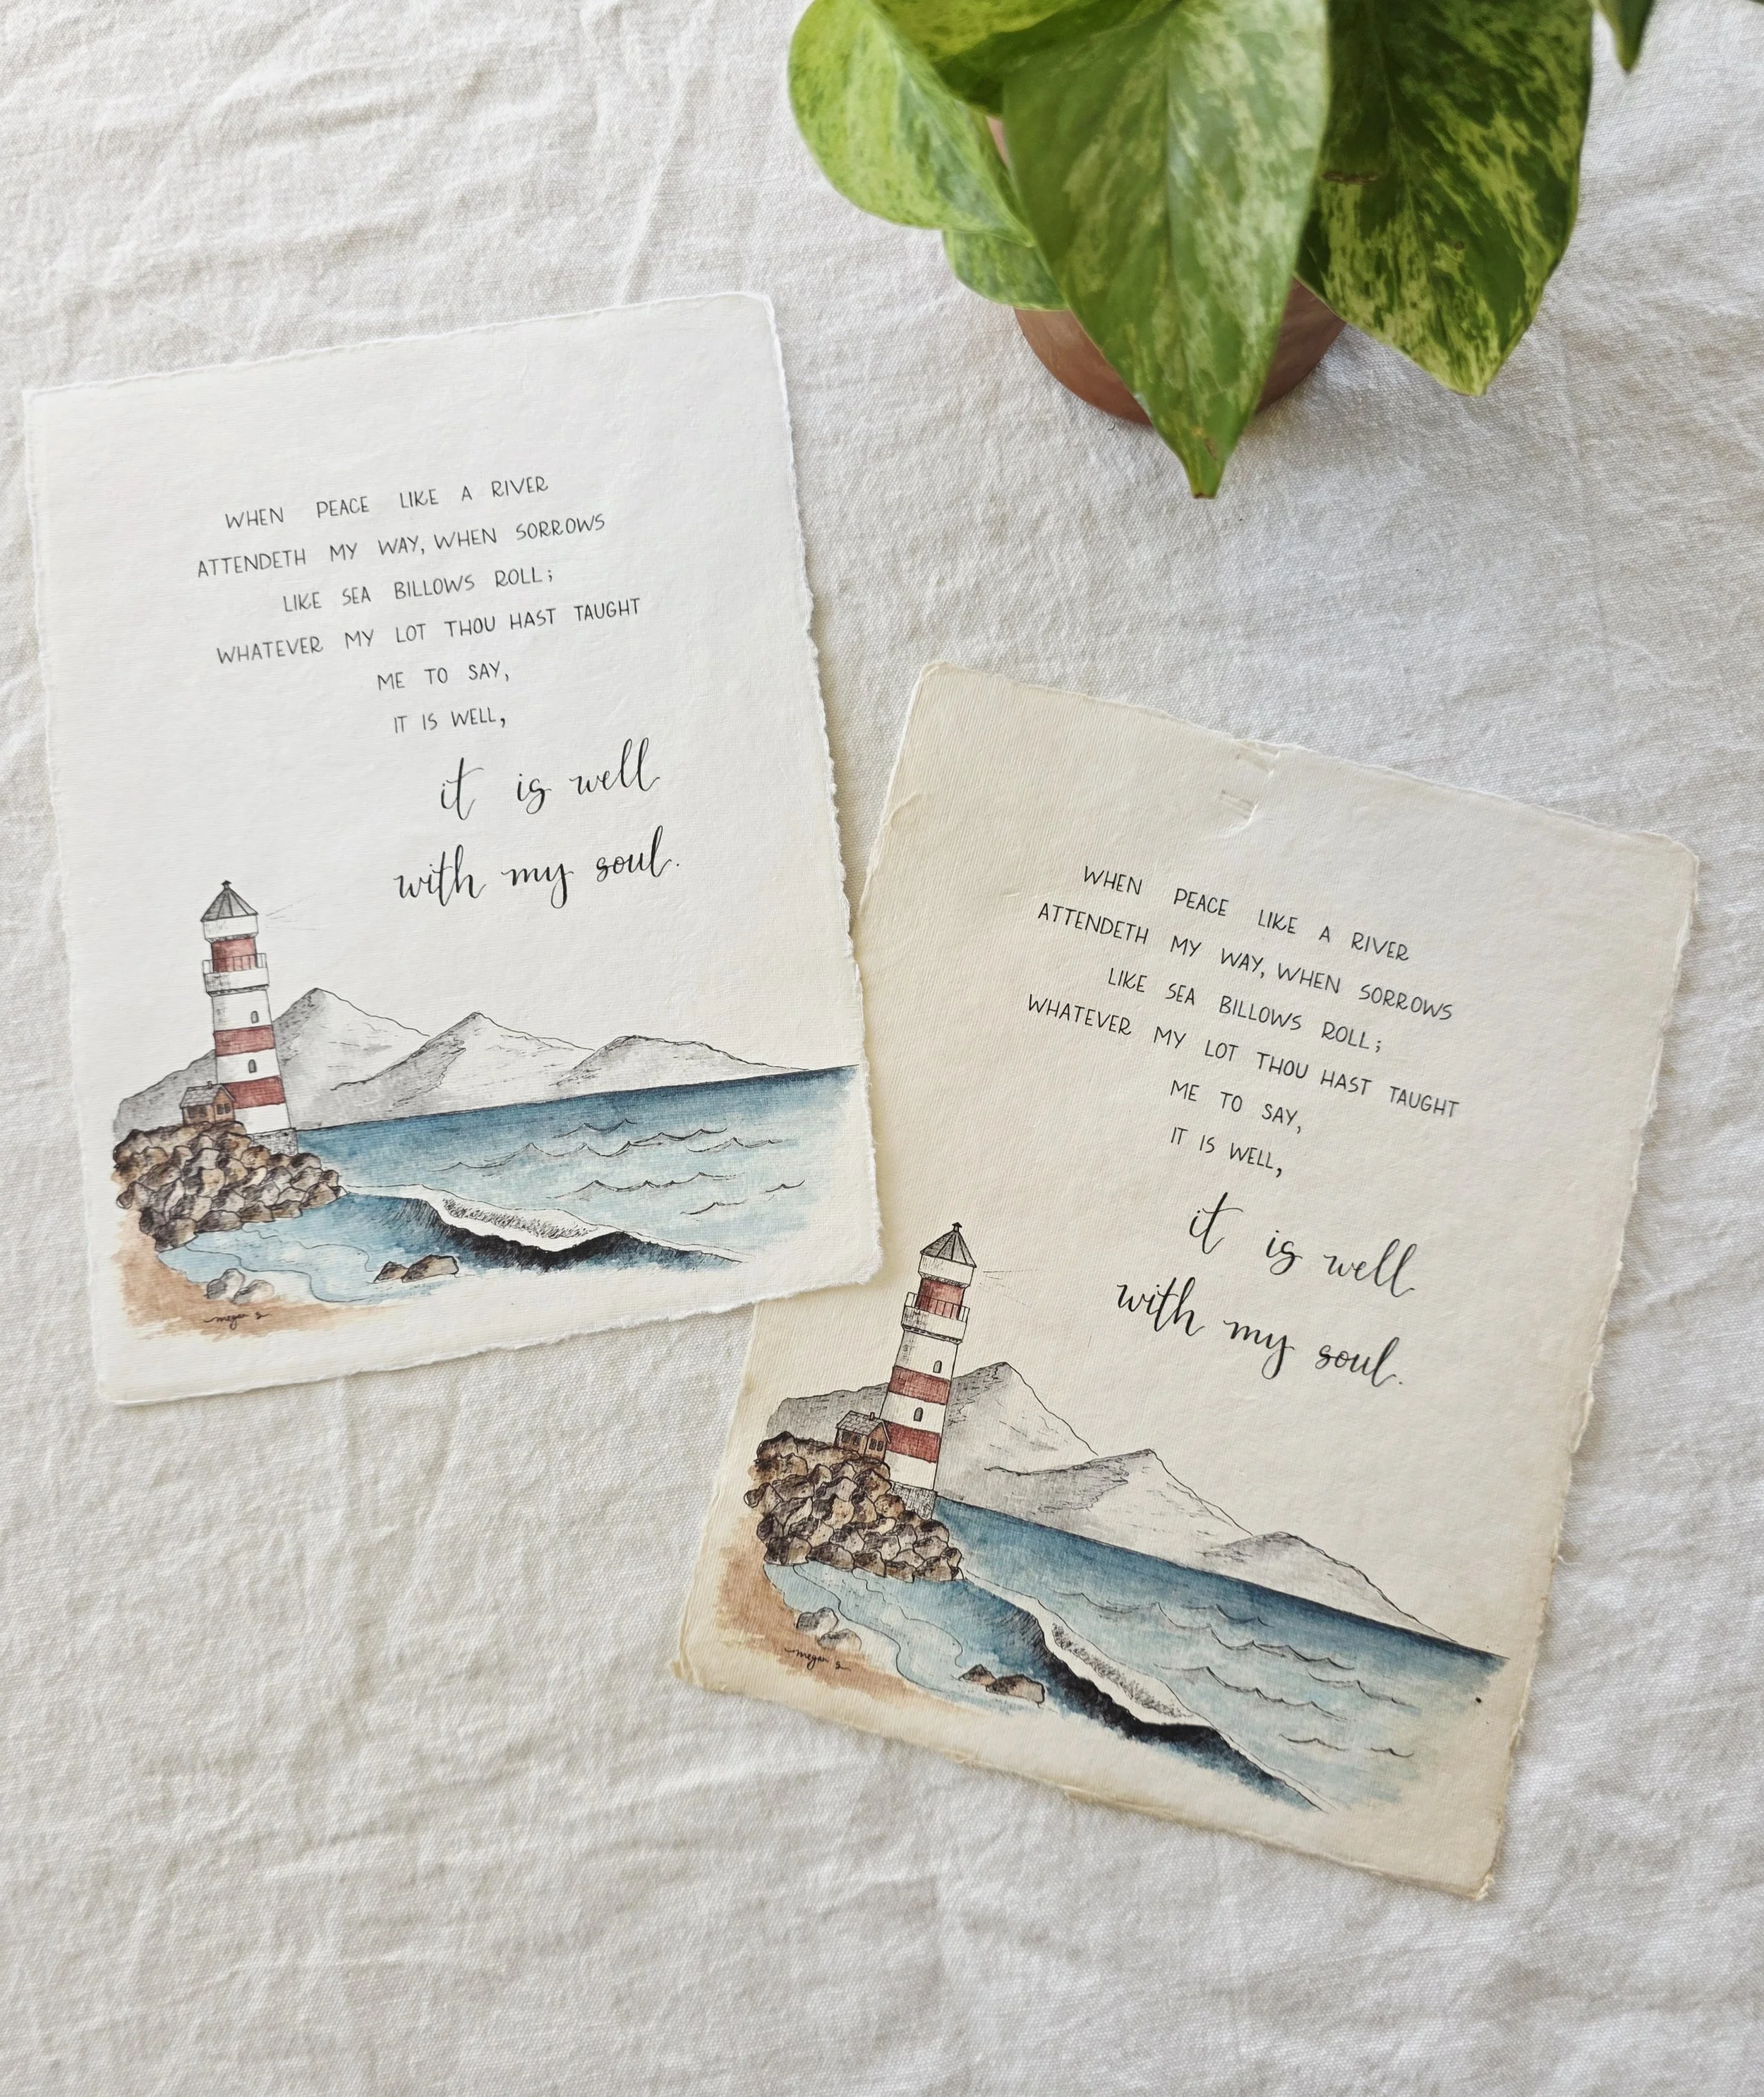 WHEN PEACE LIKE A RIVER
ATTENDETH MY WAY, WHEN SORROWS
LIKE SEA BILLOWS ROLL;
WHATEVER MY LOT THOU HAST TAUGHT
ME TO SAY,
IT IS WELL,
it is well
with my soul.
megan s
WHEN PEACE LIKE A RIVER
ATTENDETH MY WAY, WHEN SORROWS
LIKE SEA BILLOWS ROLL;
WHATEVER MY LOT THOU HAST TAUGHT
ME TO SAY,
IT IS WELL,
it is well
with my soul.
megan s